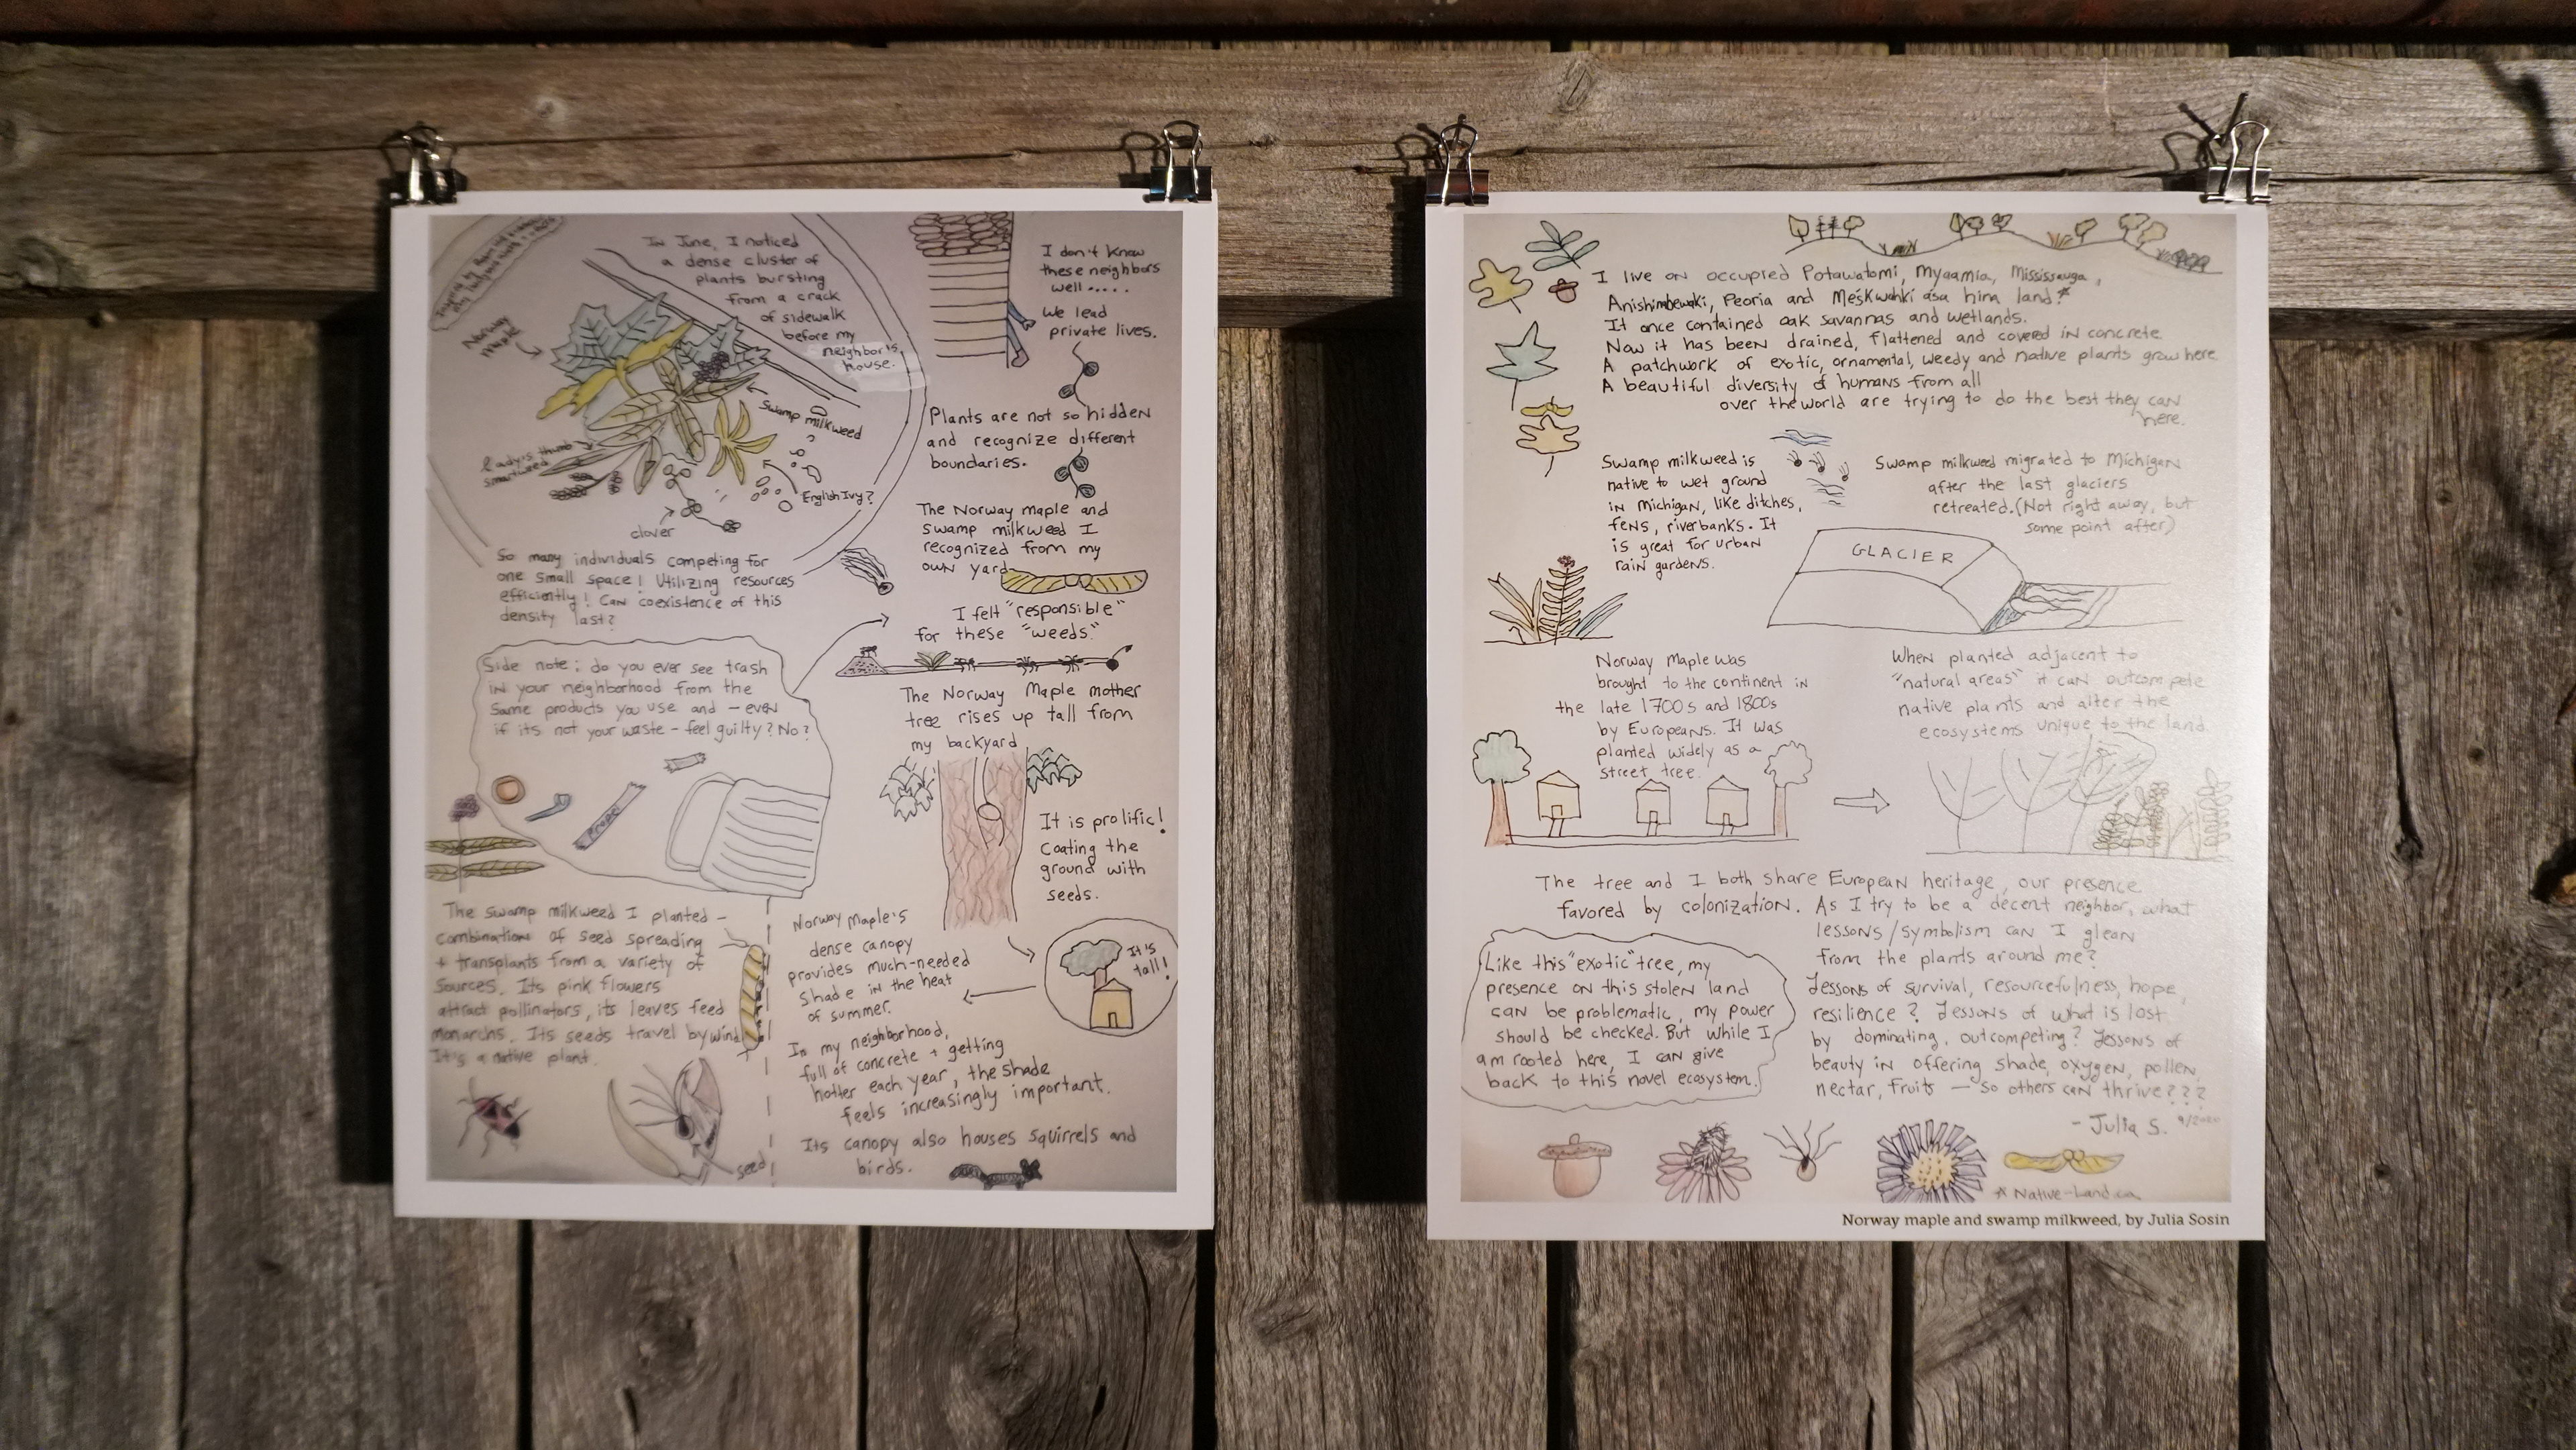 In June, I noticed
a dense cluster of
plants bursting
from a crack
of sidewalk
before my
neighbor's
house.
Norway
maple
Swamp milkweed
lady's thumb
smartweed
English Ivy?
clover
So many individuals competing for
one small space! Utilizing resources
efficiently! Can coexistence of this
density last?
Side note: do you ever see trash
in your neighborhood from the
same products you use and - even
if its not your waste - feel guilty? No?
The swamp milkweed I planted -
combination of seed spreading
+ transplants from a variety of
sources. Its pink flowers
attract pollinators, its leaves feed
monarchs. Its seeds travel by wind
It's a native plant.
seed
I don't know
these neighbors
well.....
We lead
private lives.
Plants are not so hidden
and recognize different
boundaries.
The Norway maple and
swamp milkweed I
recognized from my
own yard
I felt "responsible"
for these "weeds."
The Norway Maple mother
tree rises up tall from
my backyard
It is prolific!
Coating the
ground with
seeds.
It's
tall!
Norway Maple's
dense canopy
provides much-needed
shade in the heat
of summer.
In my neighborhood,
full of concrete + getting
hotter each year, the shade
feels increasingly important.
Its canopy also houses squirrels and
birds.
I live on occupied Potawatomi, Myaamia, Mississauga,
Anishinabewaki, Peoria and Meškwahki·aša·hina land.*
It once contained oak savannas and wetlands.
Now it has been drained, flattened and covered in concrete.
A patchwork of exotic, ornamental, weedy and native plants grow here.
A beautiful diversity of humans from all
over the world are trying to do the best they can
here.
Swamp milkweed is
native to wet ground
in Michigan, like ditches,
fens, riverbanks. It
is great for urban
rain gardens.
Swamp milkweed migrated to Michigan
after the last glaciers
retreated. (Not right away, but
some point after)
GLACIER
Norway Maple was
brought to the continent in
the late 1700s and 1800s
by Europeans. It was
planted widely as a
street tree.
When planted adjacent to
"natural areas" it can outcompete
native plants and alter the
ecosystems unique to the land.
The tree and I both share European heritage, our presence
favored by colonization. As I try to be a decent neighbor, what
lessons/symbolism can I glean
from the plants around me?
Lessons of survival, resourcefulness, hope,
resilience? Lessons of what is lost
by dominating, outcompeting? Lessons of
beauty in offering shade, oxygen, pollen,
nectar, fruits - so others can thrive???
- Julia S. 9/2020
Like this "exotic" tree, my
presence on this stolen land
can be problematic, my power
should be checked. But while I
am rooted here, I can give
back to this novel ecosystem.
* Native-Land.ca
Norway maple and swamp milkweed, by Julia Sosin